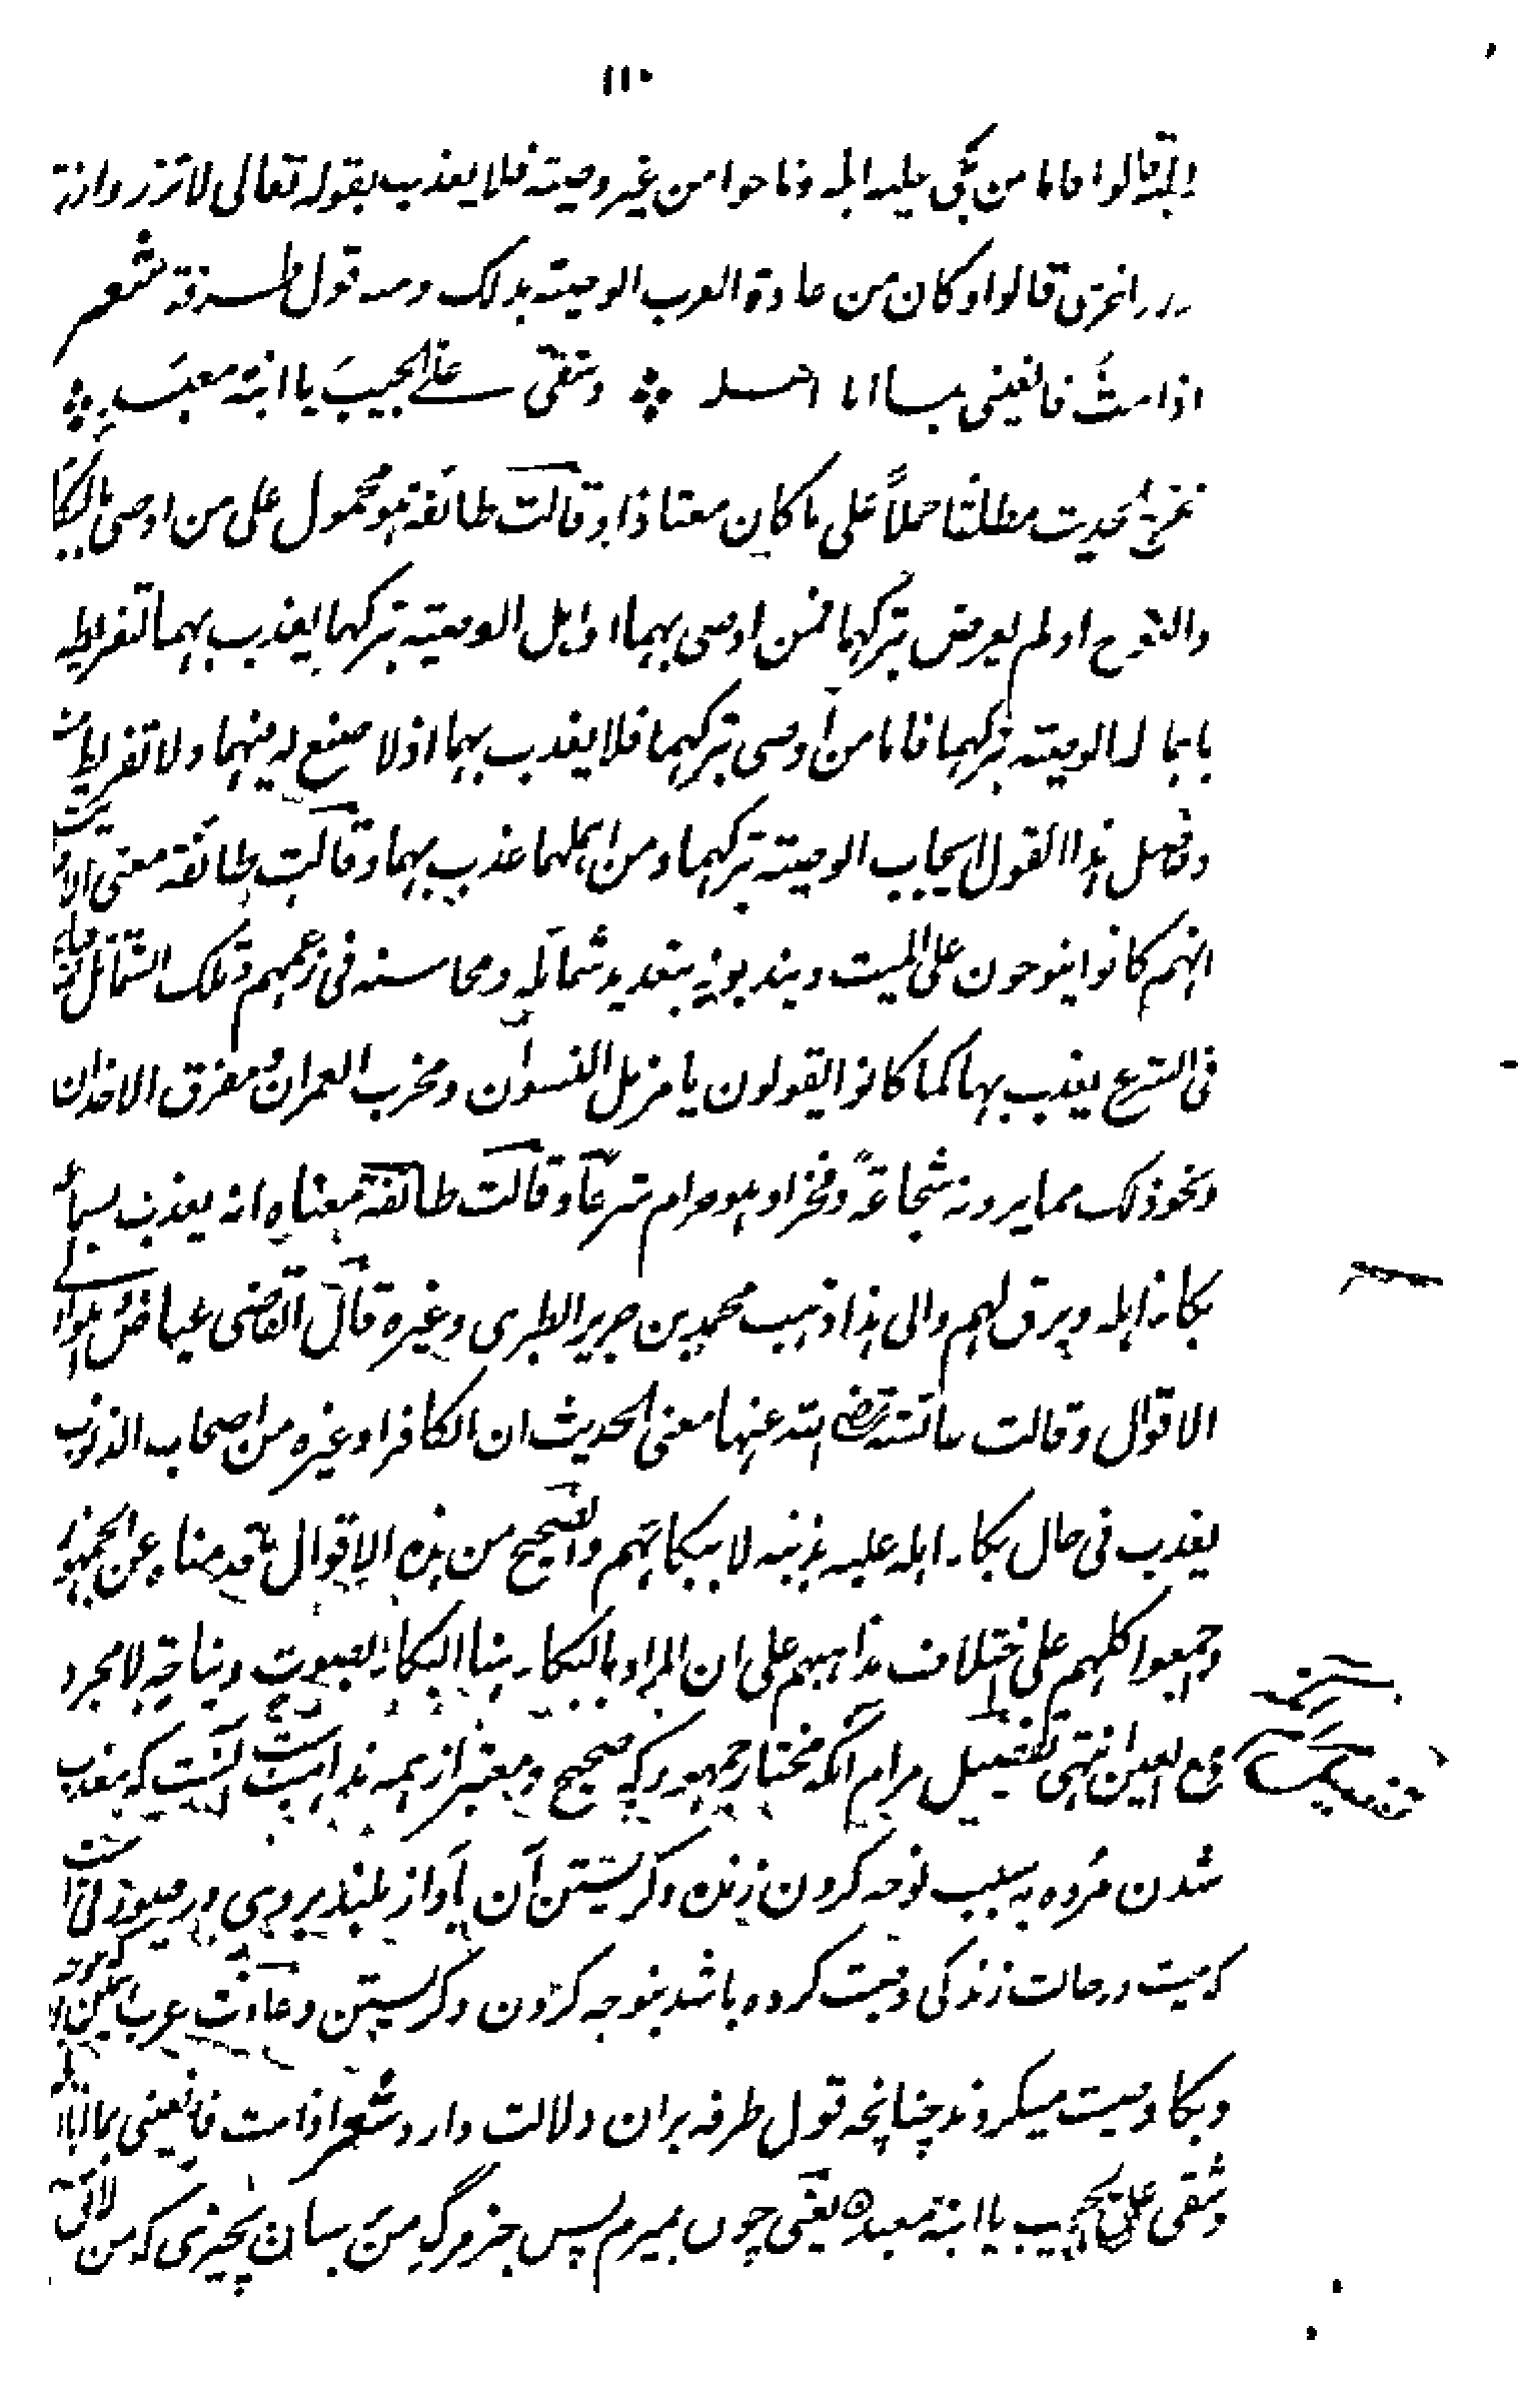 ۱۱۰
الیه قالوا فاما من بکی علیه اهله وناحوا من غیر وصیته فلا یعذب بقوله تعالی لا تزر وازرة
وزر اخری قالوا وکان من عادة العرب الوصیته بذلک ومنه قول طرفة شعر
اذا مت فانعینی بما انا اهله وشقی علی الجیب یا ابنة معبد
فخرج الحدیث مطلقا حملاً علی ما کان معتاذا وقالت طائفة هو محمول علی من اوصی بالبکا
والنوح او لم یوص بترکهما فمن اوصی بهما او اهمل الوصیته بترکهما یعذب بهما لتفریطه
باهمال الوصیته بترکهما فاما من اوصی بترکهما فلا یعذب بهما اذ لا صنع له منهما ولا تفریط منه
وحاصل هذا القول ایجاب الوصیته بترکهما ومن اهملهما عذب بهما وقالت طائفة معنی الاحادیث
انهم کانوا ینوحون علی المیت ویندبونه بتعدید شمائله ومحاسنه فی زعمهم وتلک الشمائل قبائح
فی الشرع یعذب بها کما کانوا یقولون یا مزمل النسوان ومخرب العمران ومفرق الاخدان
ونحو ذلک مما یرونه شجاعةً وفخرا وهو حرام شرعا وقالت طائفة معناه انه یعذب بسماعه
بکاء اهله ویرق لهم والی هذا ذهب محمد بن جریر الطبری وغیره قال القاضی عیاض هو اولی
الاقوال وقالت عائشة رضی الله عنها معنی الحدیث ان الکافر او غیره من اصحاب الذنوب
یعذب فی حال بکاء اهله علیه بذنبه لا ببکائهم والصحیح من هذه الاقوال ما قدمناه عن الجمهور
واجمعوا کلهم علی اختلاف مذاهبهم علی ان المراد بالبکاء هنا البکاء بصوت ونیاحة لا مجرد
دمع العین انتهی تفصیل مرام آنکه مختار جمهور که صحیح ومعتبر از همه مذاهب است آنست که معذب
شدن مرده به سبب نوحه کردن زنده وگریستن آن بآواز بلند بر وی در صورتی است
که میت در حالت زندگی وصیت کرده باشد بنوحه کردن وگریستن وعادت عرب همین بود که بنوحه
وبکا وصیت میکردند چنانچه قول طرفه بران دلالت دارد شعر اذا مت فانعینی بما انا اهله
وشقی علی الجیب یا ابنة معبد ه یعنی چون بمیرم پس خبر مرگ من برسان بچیزی که من لائق